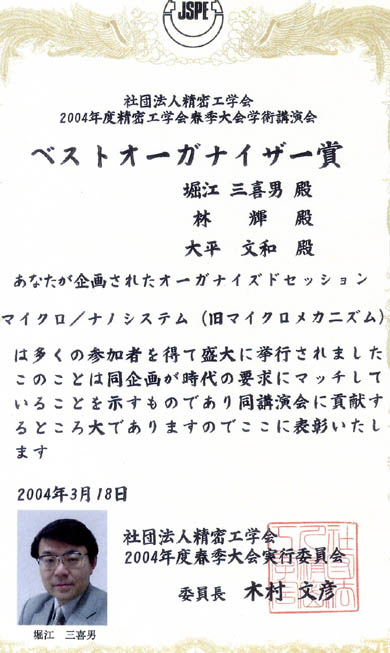 JSPE
社団法人精密工学会
2004年度精密工学会春季大会学術講演会
ベストオーガナイザー賞
堀江 三喜男 殿
林 輝 殿
大平 文和 殿
あなたが企画されたオーガナイズドセッション
マイクロ/ナノシステム (旧マイクロメカニズム)
は多くの参加者を得て盛大に挙行されました
このことは同企画が時代の要求にマッチして
いることを示すものであり同講演会に貢献す
るところ大でありますのでここに表彰いたし
ます
2004年3月18日
社団法人精密工学会
2004年度春季大会実行委員会
委員長 木村 文彦
堀江 三喜男